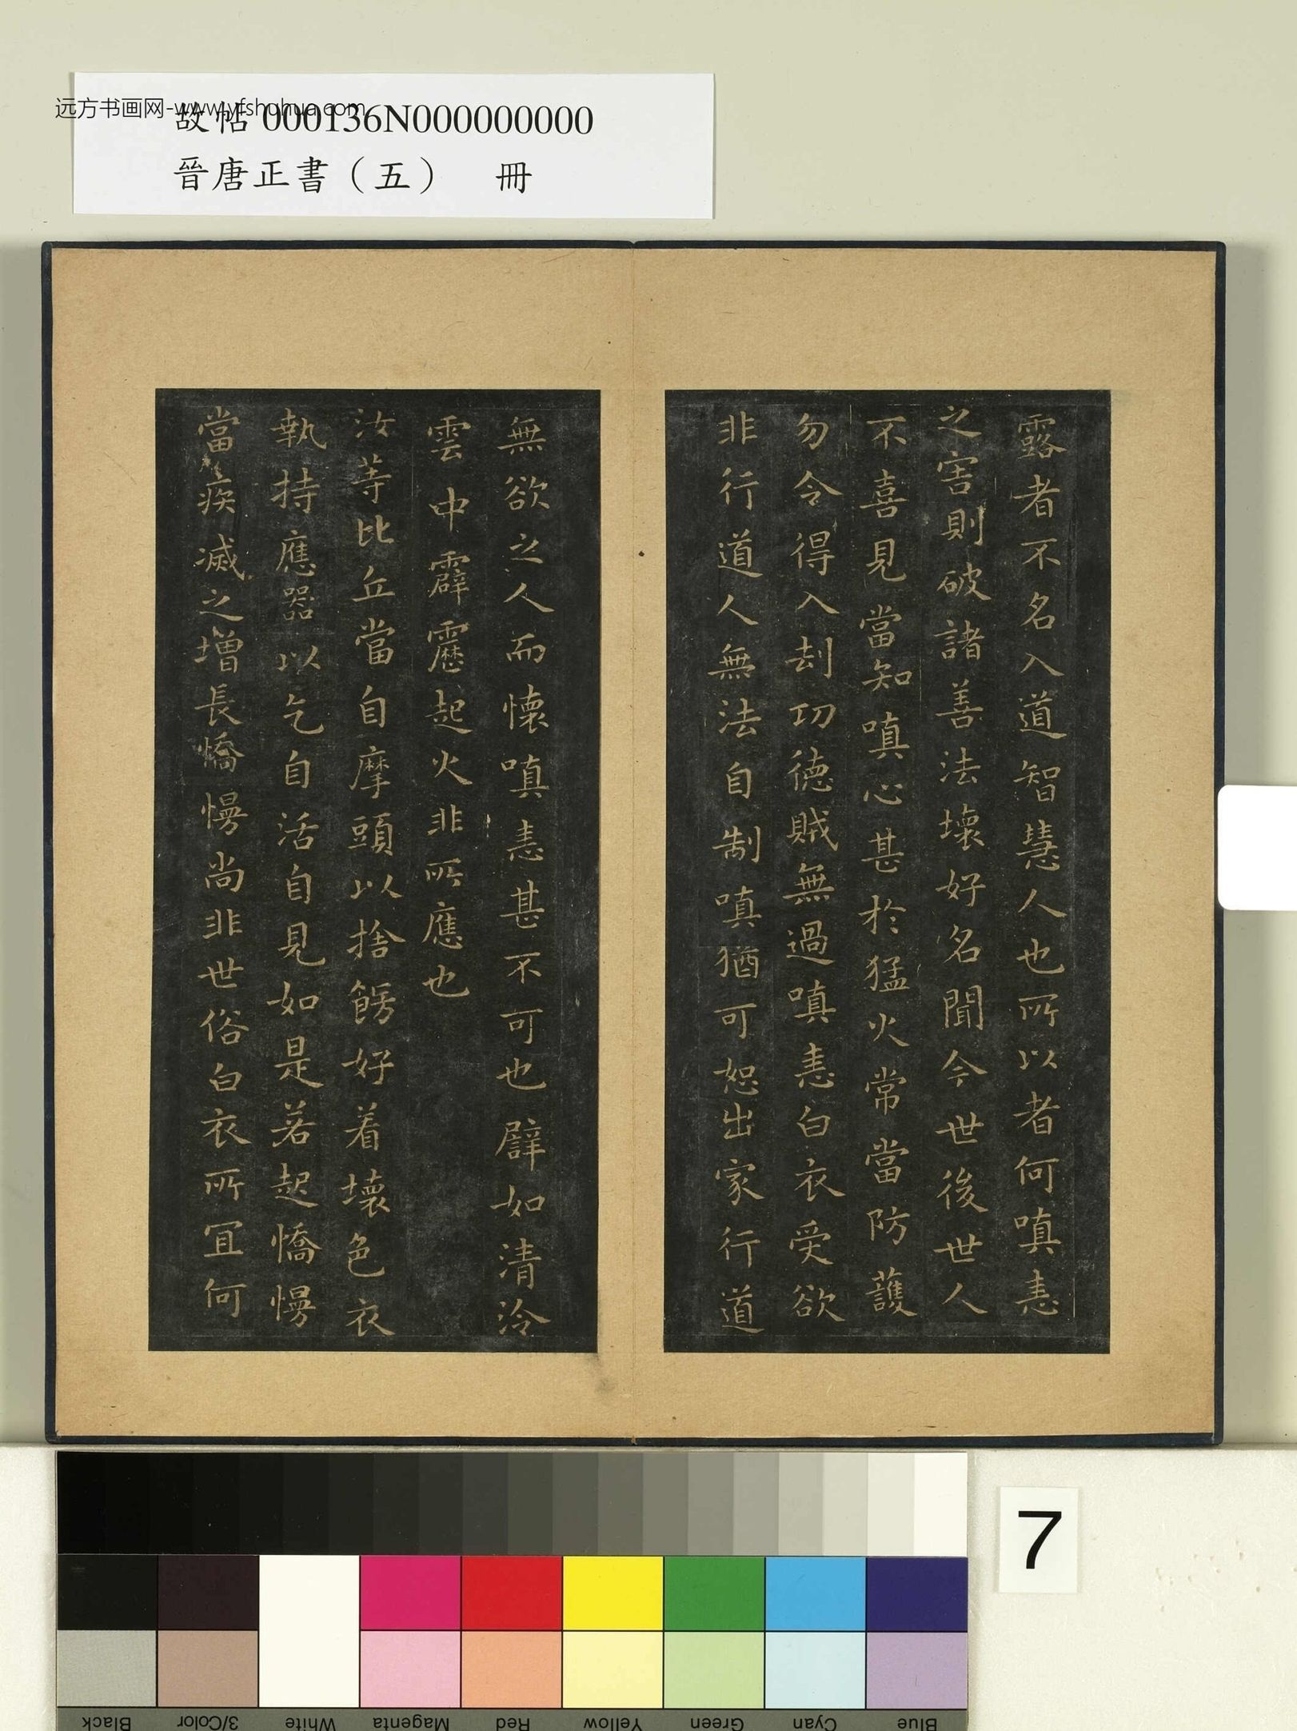 远方书画网-www.yfshuhua.com
故帖 000136N000000000
晉唐正書（五） 冊
露者不名入道智慧人也所以者何嗔恚
之害則破諸善法壞好名聞今世後世人
不喜見當知嗔心甚於猛火常當防護
勿令得入刦功德賊無過嗔恚白衣受欲
非行道人無法自制嗔猶可恕出家行道
無欲之人而懷嗔恚甚不可也譬如清泠
雲中霹靂起火非所應也
汝等比丘當自摩頭以捨餝好着壞色衣
執持應器以乞自活自見如是若起憍慢
當疾滅之增長憍慢尚非世俗白衣所宜何
7
Black
3/Color
White
Magenta
Red
Yellow
Green
Cyan
Blue